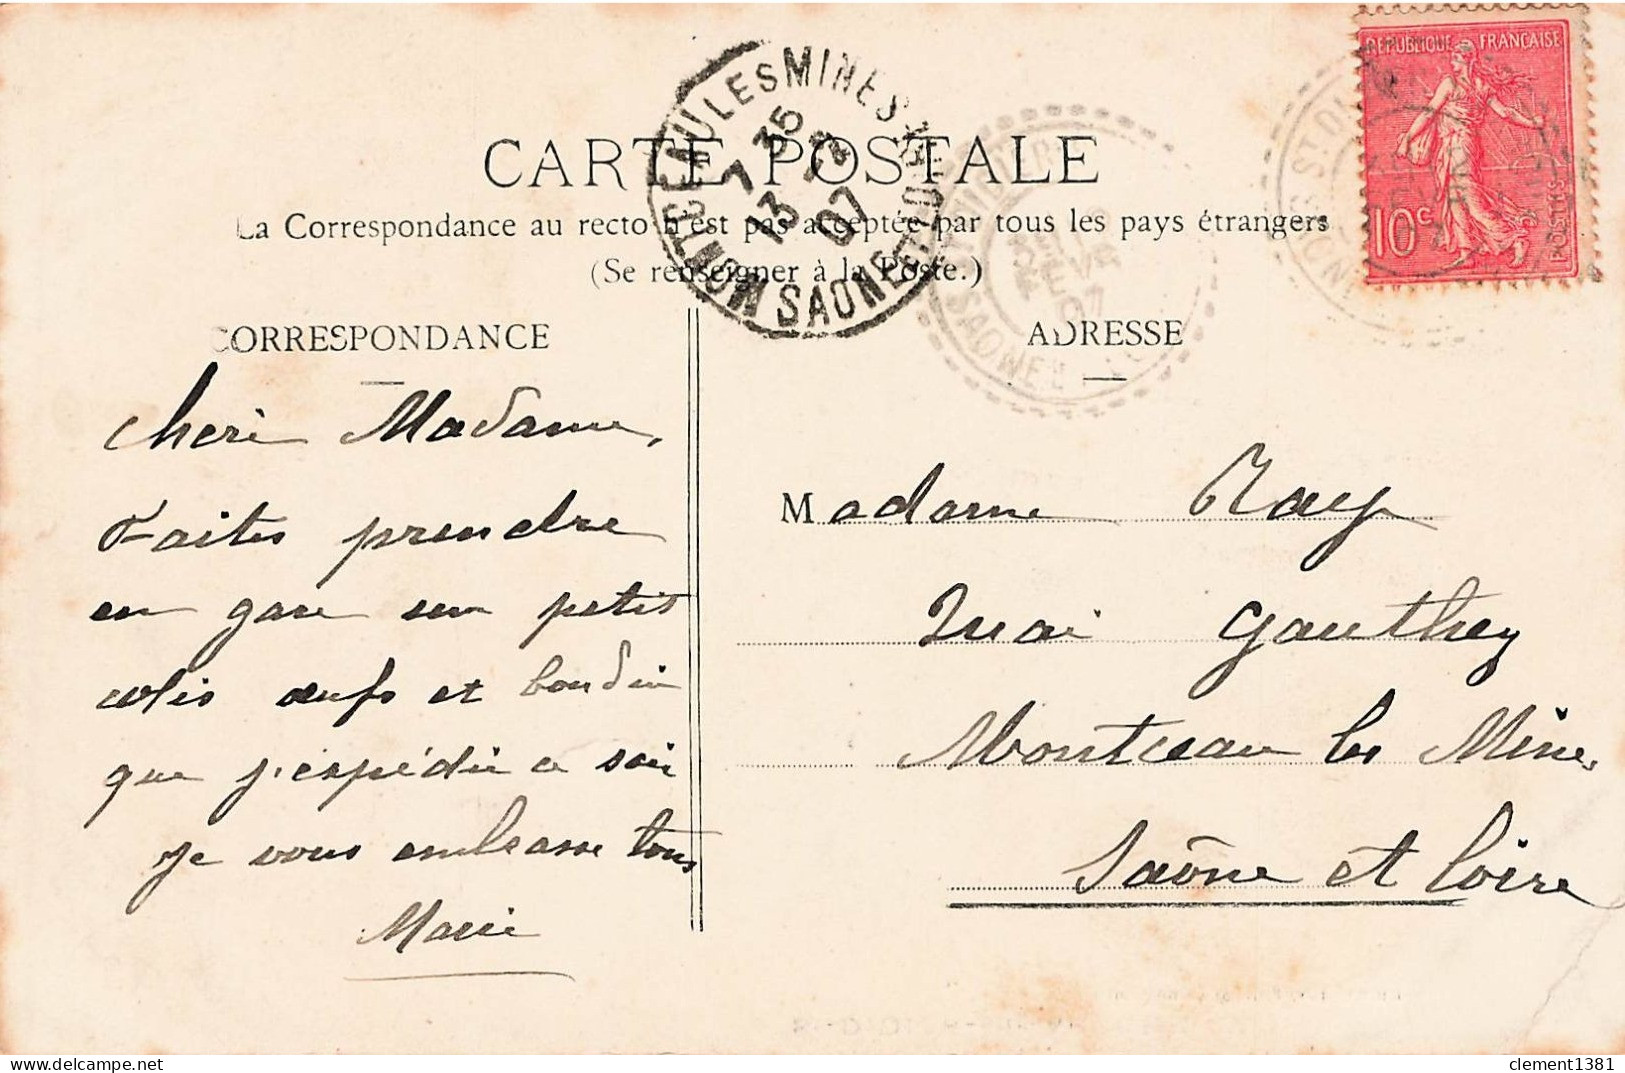 RÉPUBLIQUE FRANÇAISE
10c
POSTES
MONTCEAU LES MINES
SAONE ET LOIRE
7 35
13 - 2
07
FEVR
07
CARTE POSTALE
La Correspondance au recto n'est pas acceptée par tous les pays étrangers
(Se renseigner à la Poste.)
CORRESPONDANCE
cheri Madame,
Faites prendre
en gare un petit
colis œufs et boudin
que j'expédie ce soir
je vous embrasse tous
Marie
ADRESSE
Madame Ray
Quai Gauthey
Montceau les Mines
Saône et Loire
clement1381